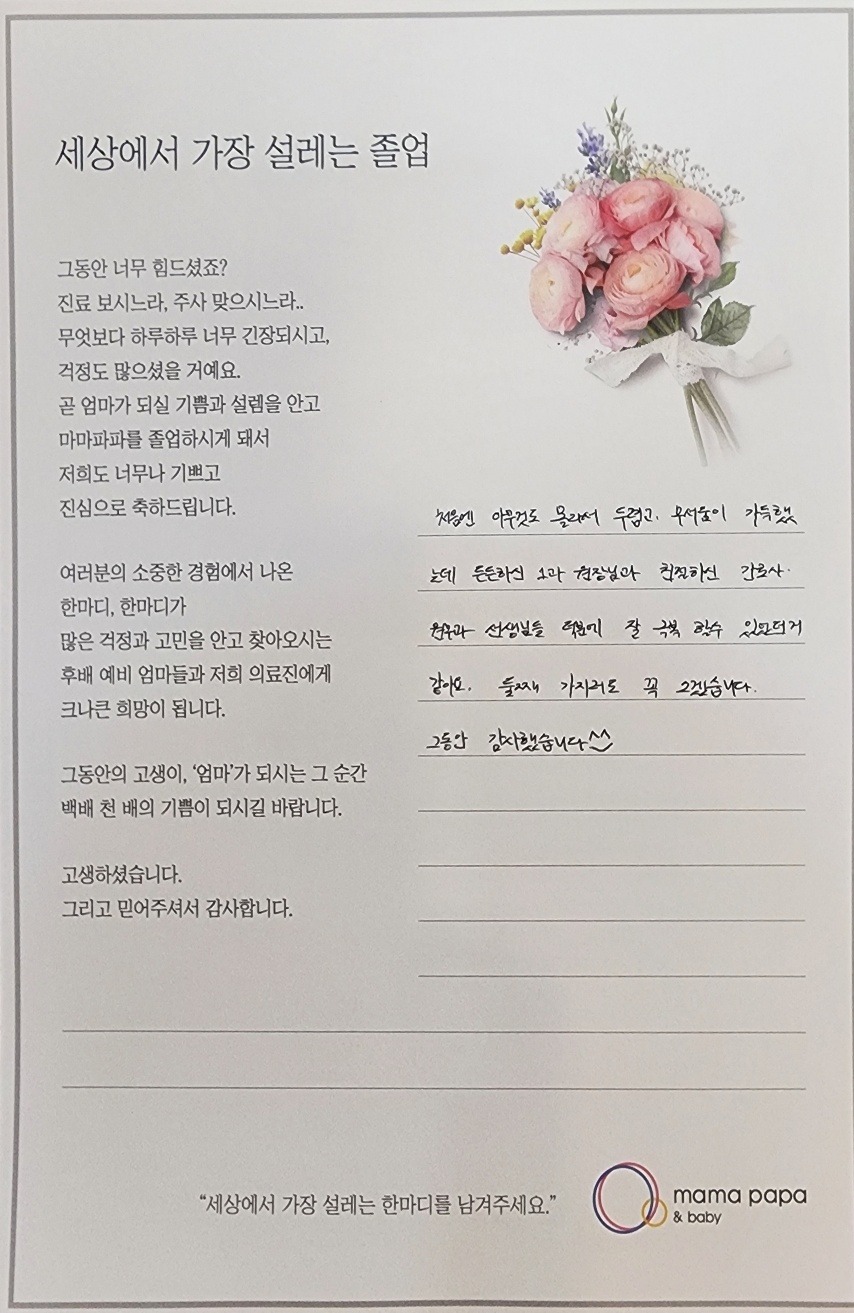 세상에서 가장 설레는 졸업
그동안 너무 힘드셨죠?
진료 보시느라, 주사 맞으시느라..
무엇보다 하루하루 너무 긴장되시고,
걱정도 많으셨을 거예요.
곧 엄마가 되실 기쁨과 설렘을 안고
마마파파를 졸업하시게 돼서
저희도 너무나 기쁘고
진심으로 축하드립니다.
여러분의 소중한 경험에서 나온
한마디, 한마디가
많은 걱정과 고민을 안고 찾아오시는
후배 예비 엄마들과 저희 의료진에게
크나큰 희망이 됩니다.
그동안의 고생이, '엄마'가 되시는 그 순간
백배 천 배의 기쁨이 되시길 바랍니다.
고생하셨습니다.
그리고 믿어주셔서 감사합니다.
처음엔 아무것도 몰라서 두렵고, 무서움이 가득했
는데 든든하신 1과 원장님과 친절하신 간호사.
원무과 선생님들 덕분에 잘 극복 할수 있었던거
같아요. 둘째 가지러도 꼭 오겠습니다.
그동안 감사했습니다^^
"세상에서 가장 설레는 한마디를 남겨주세요."
mama papa
& baby